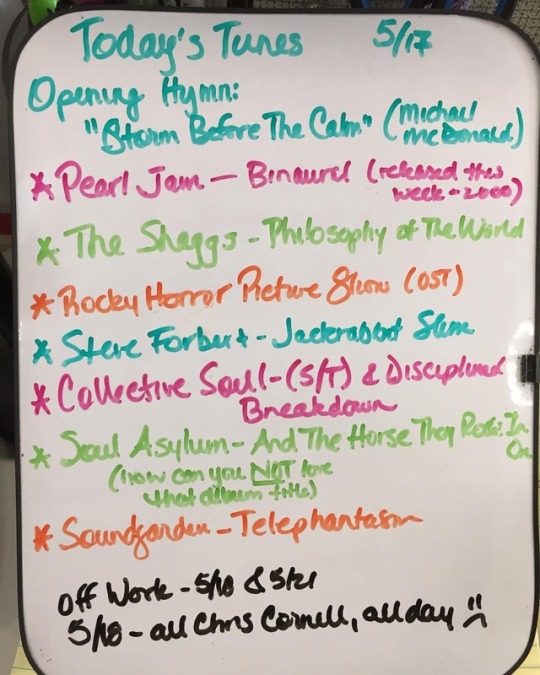 Today's Tunes 5/17
Opening Hymn:
"Storm Before The Calm" (Michael
McDonald)
* Pearl Jam - Binaural (released this
week - 2000)
* The Shaggs - Philosophy of The World
* Rocky Horror Picture Show (OST)
* Steve Forbert - Jackrabbit Slim
* Collective Soul - (S/T) & Disciplined
Breakdown
* Soul Asylum - And The Horse They Rode In
On
(how can you NOT love
that album title)
* Soundgarden - Telephantasm
Off Work - 5/18 & 5/21
5/18 - all Chris Cornell, all day